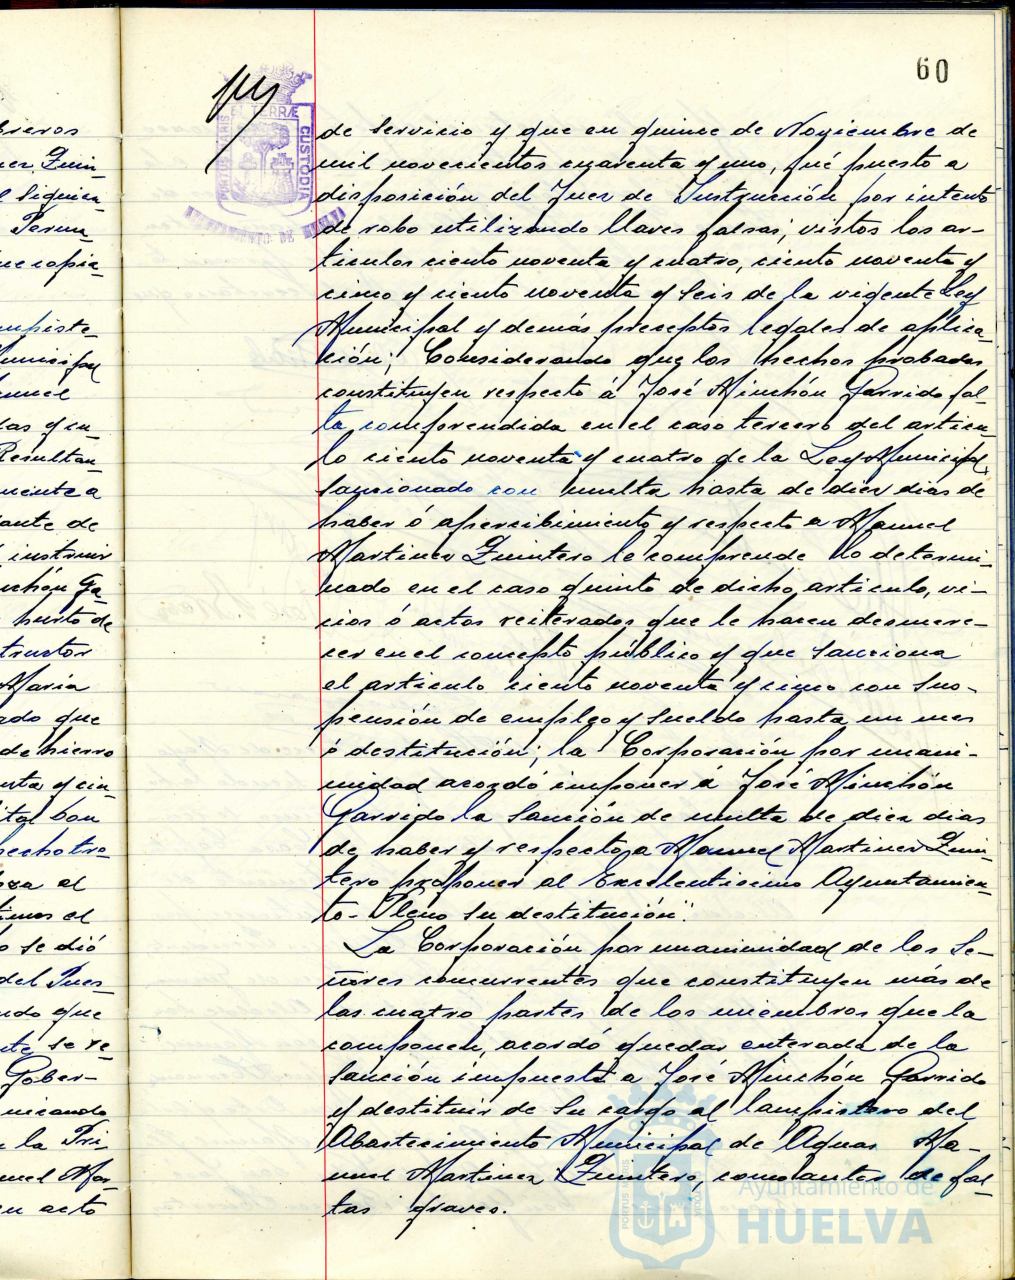 60
PORTUS MARIS
ET TERRÆ
CUSTODIA
AYUNTAMIENTO DE HUELVA
de servicio y que en quince de Noviembre de
mil novecientos cuarenta y uno, fué puesto a
disposición del Juez de Instrucción por intento
de robo utilizando llaves falsas; vistos los ar-
ticulos ciento noventa y cuatro, ciento noventa y
cinco y ciento noventa y seis de la vigente Ley
Municipal y demás preceptos legales de aplica-
ción; Considerando que los hechos probados
constituyen respecto á José Minchón Garrido fal-
ta comprendida en el caso tercero del articu-
lo ciento noventa y cuatro de la Ley Municipal,
sancionado con multa hasta de diez dias de
haber ó apercibimiento y respecto a Manuel
Martinez Quintero le comprende lo determi-
nado en el caso quinto de dicho articulo, vi-
cios ó actos reiterados que le hacen desmere-
cer en el concepto público y que sanciona
el articulo ciento noventa y cinco con sus-
pensión de empleo y sueldo hasta un mes
ó destitución; la Corporación por unani-
midad acordó imponer á José Minchón
Garrido la sanción de multa de diez dias
de haber y respecto a Manuel Martinez Quin-
tero proponer al Excelentisimo Ayuntamien-
to-Pleno su destitución".
La Corporación por unanimidad de los Se-
ñores concurrentes que constituyen más de
las cuatro partes de los miembros que la
componen, acordó quedar enterada de la
sanción impuesta a José Minchón Garrido
y destituir de su cargo al lampistero del
Abastecimiento Municipal de Aguas Ma-
nuel Martinez Quintero, como autor de fal-
tas graves.
Ayuntamiento de
HUELVA
breros
nez Quin-
Perma-
ue copia
mpiste-
unicipal
nuel
las y en-
Resultan-
mente a
ante de
instruir
nchón Ga-
hurto de
tructor
Maria
ado que
de hierro
nta y cin-
ital con
hecho tro-
za al
timos el
o se dió
del Pues-
ndo que
nte se re-
Gober-
nicando
n la Pri-
nuel Mar-
en acto